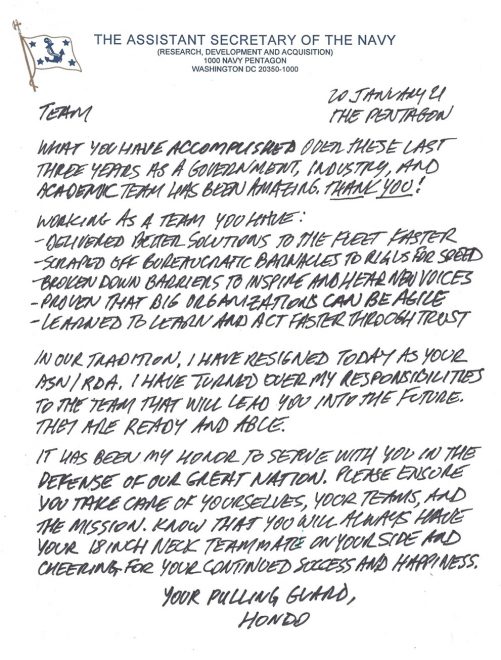 THE ASSISTANT SECRETARY OF THE NAVY
(RESEARCH, DEVELOPMENT AND ACQUISITION)
1000 NAVY PENTAGON
WASHINGTON DC 20350-1000
20 JANUARY 21
TEAM
THE PENTAGON
WHAT YOU HAVE ACCOMPLISHED OVER THESE LAST
THREE YEARS AS A GOVERNMENT, INDUSTRY, AND
ACADEMIC TEAM HAS BEEN AMAZING. THANK YOU!
WORKING AS A TEAM YOU HAVE:
- DELIVERED BETTER SOLUTIONS TO THE FLEET FASTER
- SCRAPED OFF BUREAUCRATIC BARNACLES TO RIG US FOR SPEED
- BROKEN DOWN BARRIERS TO INSPIRE AND HEAR NEW VOICES
- PROVEN THAT BIG ORGANIZATIONS CAN BE AGILE
- LEARNED TO LEARN AND ACT FASTER THROUGH TRUST
IN OUR TRADITION, I HAVE RESIGNED TODAY AS YOUR
ASN/RDA. I HAVE TURNED OVER MY RESPONSIBILITIES
TO THE TEAM THAT WILL LEAD YOU INTO THE FUTURE.
THEY ARE READY AND ABLE.
IT HAS BEEN MY HONOR TO SERVE WITH YOU IN THE
DEFENSE OF OUR GREAT NATION. PLEASE ENSURE
YOU TAKE CARE OF YOURSELVES, YOUR TEAMS, AND
THE MISSION. KNOW THAT YOU WILL ALWAYS HAVE
YOUR 18 INCH NECK TEAMMATE ON YOUR SIDE AND
CHEERING FOR YOUR CONTINUED SUCCESS AND HAPPINESS.
YOUR PULLING GUARD,
HONDO